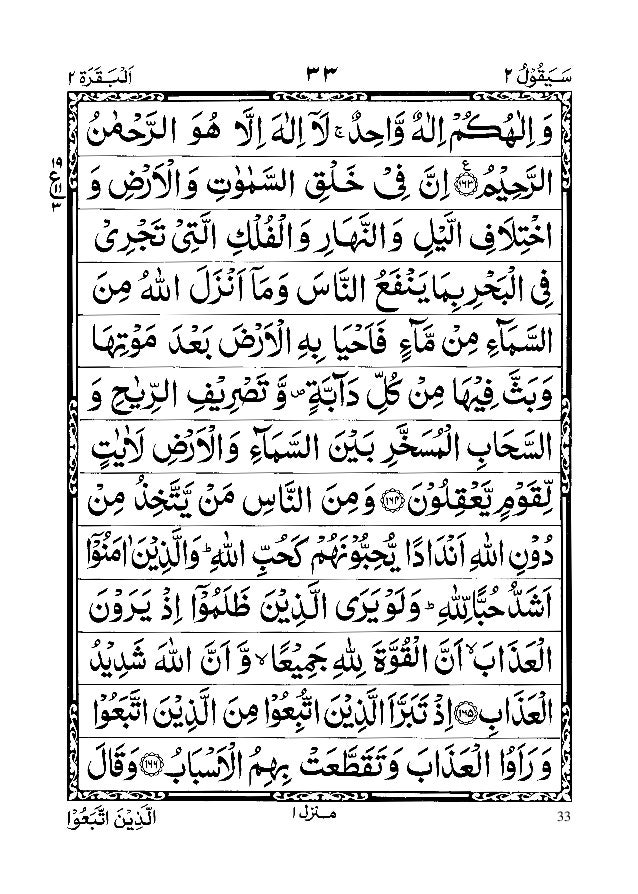 سَيَقُوْلُ ٢ ٣٣ اَلْبَقَرَة ٢
وَ اِلٰهُكُمْ اِلٰهٌ وَّاحِدٌ ۚ لَاۤ اِلٰهَ اِلَّا هُوَ الرَّحْمٰنُ
الرَّحِيْمُ ۧ‏﴿۱۶۳﴾ اِنَّ فِىْ خَلْقِ السَّمٰوٰتِ وَ الْاَرْضِ وَ
اخْتِلَافِ الَّيْلِ وَ النَّهَارِ وَ الْفُلْكِ الَّتِىْ تَجْرِىْ
فِى الْبَحْرِ بِمَا يَنْفَعُ النَّاسَ وَ مَاۤ اَنْزَلَ اللّٰهُ مِنَ
السَّمَآءِ مِنْ مَّآءٍ فَاَحْيَا بِهِ الْاَرْضَ بَعْدَ مَوْتِهَا
وَ بَثَّ فِيْهَا مِنْ كُلِّ دَآبَّةٍ ۪ وَّ تَصْرِيْفِ الرِّيٰحِ وَ
السَّحَابِ الْمُسَخَّرِ بَيْنَ السَّمَآءِ وَ الْاَرْضِ لَاٰيٰتٍ
لِّقَوْمٍ يَّعْقِلُوْنَ ﴿۱۶۴﴾ وَ مِنَ النَّاسِ مَنْ يَّتَّخِذُ مِنْ
دُوْنِ اللّٰهِ اَنْدَادًا يُّحِبُّوْنَهُمْ كَحُبِّ اللّٰهِ ؕ وَ الَّذِيْنَ اٰمَنُوْۤا
اَشَدُّ حُبًّا لِّلّٰهِ ؕ وَ لَوْ يَرَى الَّذِيْنَ ظَلَمُوْۤا اِذْ يَرَوْنَ
الْعَذَابَ ۙ اَنَّ الْقُوَّةَ لِلّٰهِ جَمِيْعًا ۙ وَّ اَنَّ اللّٰهَ شَدِيْدُ
الْعَذَابِ ﴿۱۶۵﴾ اِذْ تَبَرَّاَ الَّذِيْنَ اتُّبِعُوْا مِنَ الَّذِيْنَ اتَّبَعُوْا
وَ رَاَوُا الْعَذَابَ وَ تَقَطَّعَتْ بِهِمُ الْاَسْبَابُ ﴿۱۶۶﴾ وَ قَالَ
١٩
ع
١١
٣
33 منزل ١ الَّذِيْنَ اتَّبَعُوْا